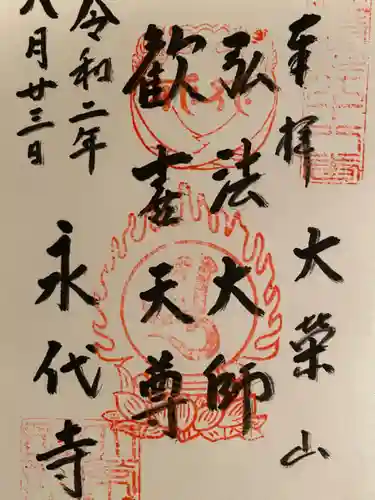 奉拝
大榮山
弘法大師
歓喜天尊
令和二年
八月廿三日
永代寺